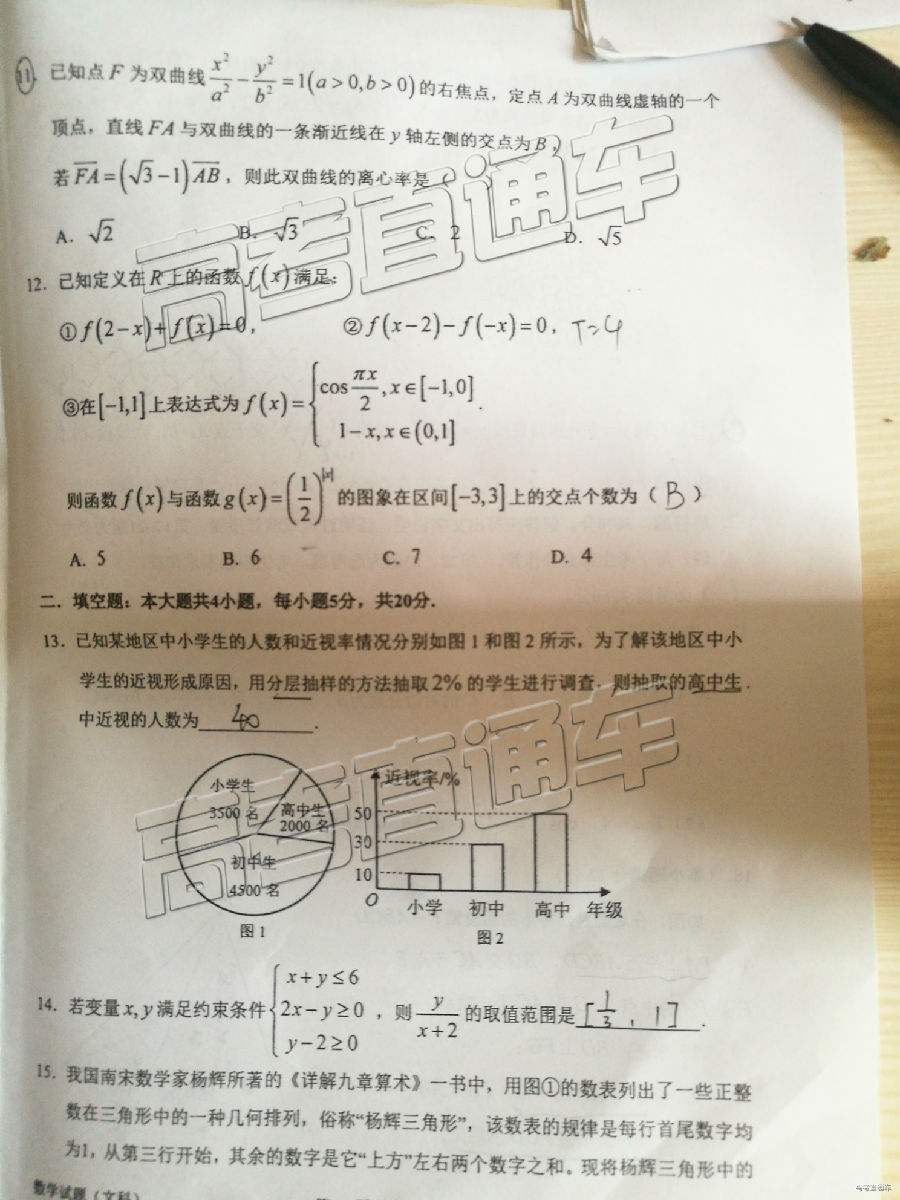 11. 已知点 F 为双曲线 x²/a² - y²/b² = 1(a > 0, b > 0) 的右焦点，定点 A 为双曲线虚轴的一个
顶点，直线 FA 与双曲线的一条渐近线在 y 轴左侧的交点为 B，
若 FA = (√3 - 1) AB，则此双曲线的离心率是（
A. √2 B. √3 C. 2 D. √5
12. 已知定义在 R 上的函数 f(x) 满足：
① f(2-x)+f(x)=0， ② f(x-2)-f(-x)=0， T=4
③在[-1,1]上表达式为 f(x) = { cos πx/2, x∈[-1,0]
1-x, x∈(0,1] .
则函数 f(x) 与函数 g(x) = (1/2)^|x| 的图象在区间[-3,3]上的交点个数为（ B ）
A. 5 B. 6 C. 7 D. 4
二．填空题：本大题共4小题，每小题5分，共20分．
13．已知某地区中小学生的人数和近视率情况分别如图 1 和图 2 所示，为了解该地区中小
学生的近视形成原因，用分层抽样的方法抽取 2% 的学生进行调查，则抽取的高中生
中近视的人数为 40 ．
小学生
3500 名
高中生
2000 名
初中生
4500 名
图 1
近视率/%
50
30
10
O 小学 初中 高中 年级
图 2
14．若变量 x, y 满足约束条件 { x+y≤6
2x-y≥0
y-2≥0
，则 y/(x+2) 的取值范围是 [1/3, 1] ．
15．我国南宋数学家杨辉所著的《详解九章算术》一书中，用图①的数表列出了一些正整
数在三角形中的一种几何排列，俗称“杨辉三角形”，该数表的规律是每行首尾数字均
为1，从第三行开始，其余的数字是它“上方”左右两个数字之和。现将杨辉三角形中的
数学试题（文科）
高考直通车
高考直通车
高考直通车